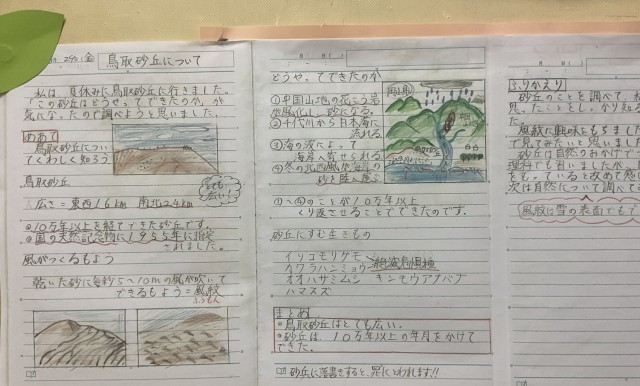 29日(金) 鳥取砂丘について
私は、夏休みに鳥取砂丘に行きました。
「この砂丘はどうやってできたのか」が
気になったので調べようと思いました。
めあて
鳥取砂丘につい
てくわしく知ろう
鳥取砂丘
とても
広い!
広さ=東西16km 南北2.4km
10万年以上を経てできた砂丘です。
国の天然記念物に1955年に指定
されました。
風がつくるもよう
乾いた砂に毎秒5〜10mの風が吹いて
できるもよう=風紋
ふうもん
どうやってできたのか
①中国山地の花こう岩
が風化し、砂になる。
②千代川から日本海に
流れる。
③海の波によって
海岸へ寄せられる。
④冬の北西風が海岸の
砂を陸へ運ぶ
①〜④のことが10万年以上
くり返させることでできたのです。
砂丘にすむ生きもの
イソコモリグモ
イワラハンミョウ 絶滅危惧種
オオハサミムシ キンモウアナバチ
ハマスズ
まとめ
鳥取砂丘はとても広い。
砂丘は、10万年以上の年月をかけて
できた。
砂丘に落書きすると、罪にとわれます!!
ふりかえり
砂丘のことを調べて、
思ったことをし、かり知る
風紋に興味をもちまし
で見てみたいと思いまし
砂丘は自然のおかげで
理科でも言いましたが、
をもっていると改めて感
次は自然について調べて
風紋は雪の表面でもで